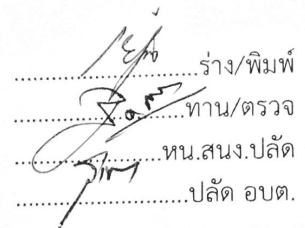 ....................ร่าง/พิมพ์
....................ทาน/ตรวจ
....................หน.สนง.ปลัด
....................ปลัด อบต.